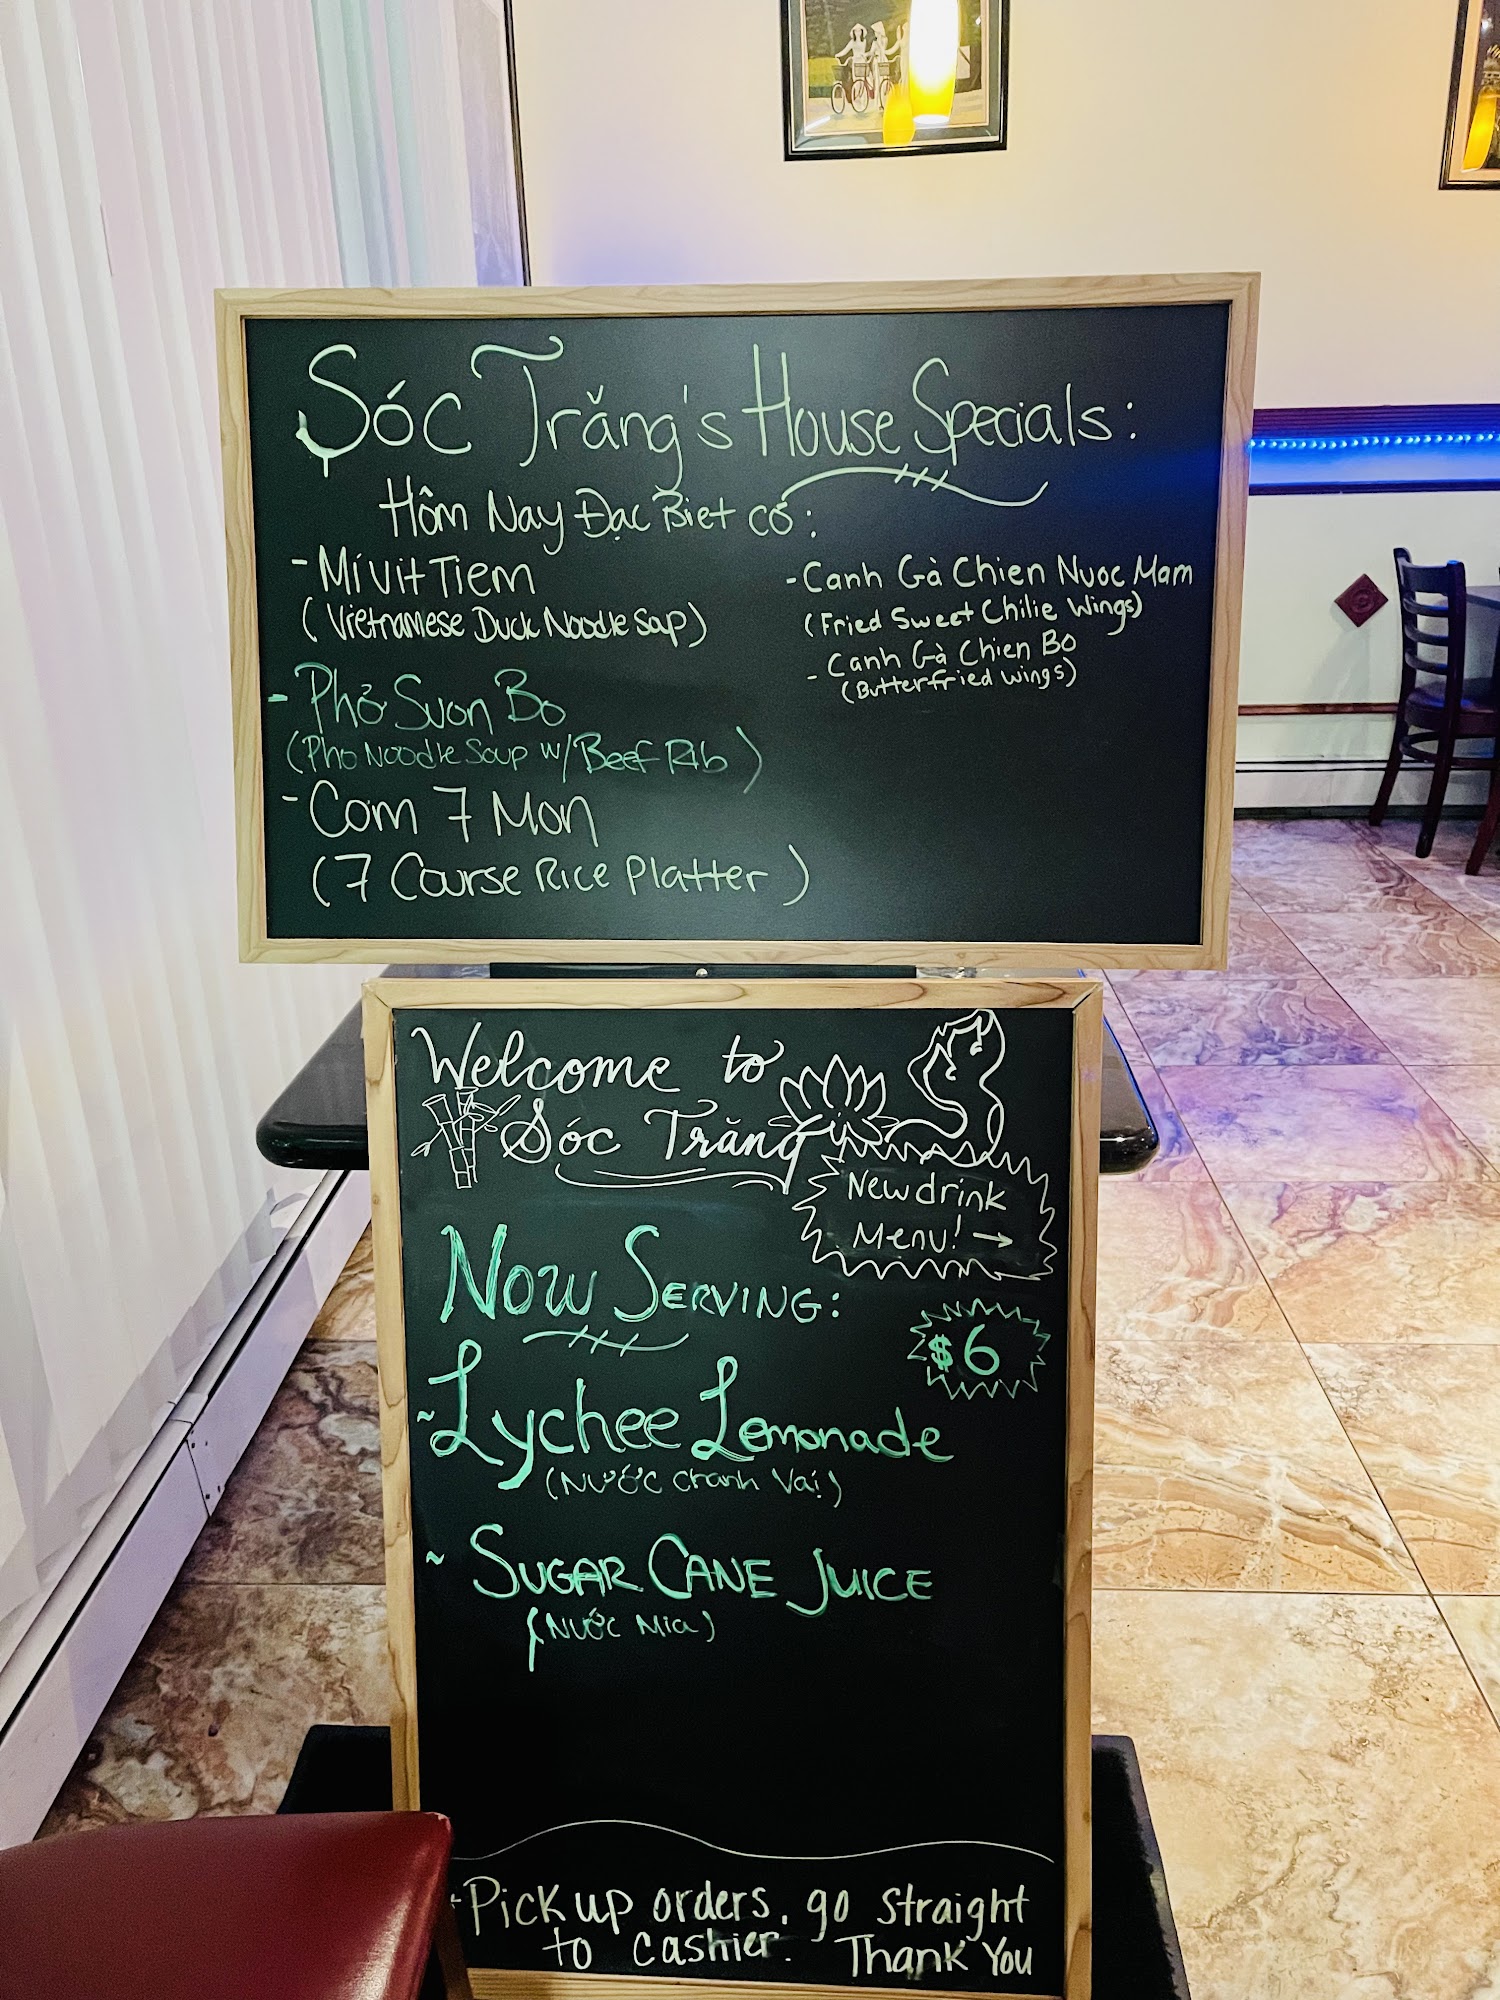 Sóc Trăng's House Specials:
Hôm Nay Đạc Biet có:
- Mí vit Tiem
(Vietnamese Duck Noodle Soup)
- Phở Suon Bo
(Pho Noodle Soup w/ Beef Rib)
- Com 7 Mon
(7 Course Rice Platter)
- Canh Gà Chien Nuoc Mam
(Fried Sweet Chilie Wings)
- Canh Gà Chien Bo
(Butterfried wings)
Welcome to
Sóc Trăng
New drink
Menu! →
Now Serving:
$6
~ Lychee Lemonade
(Nước chanh Vải)
~ Sugar Cane Juice
(Nước Mia)
Pick up orders, go straight
to cashier. Thank You